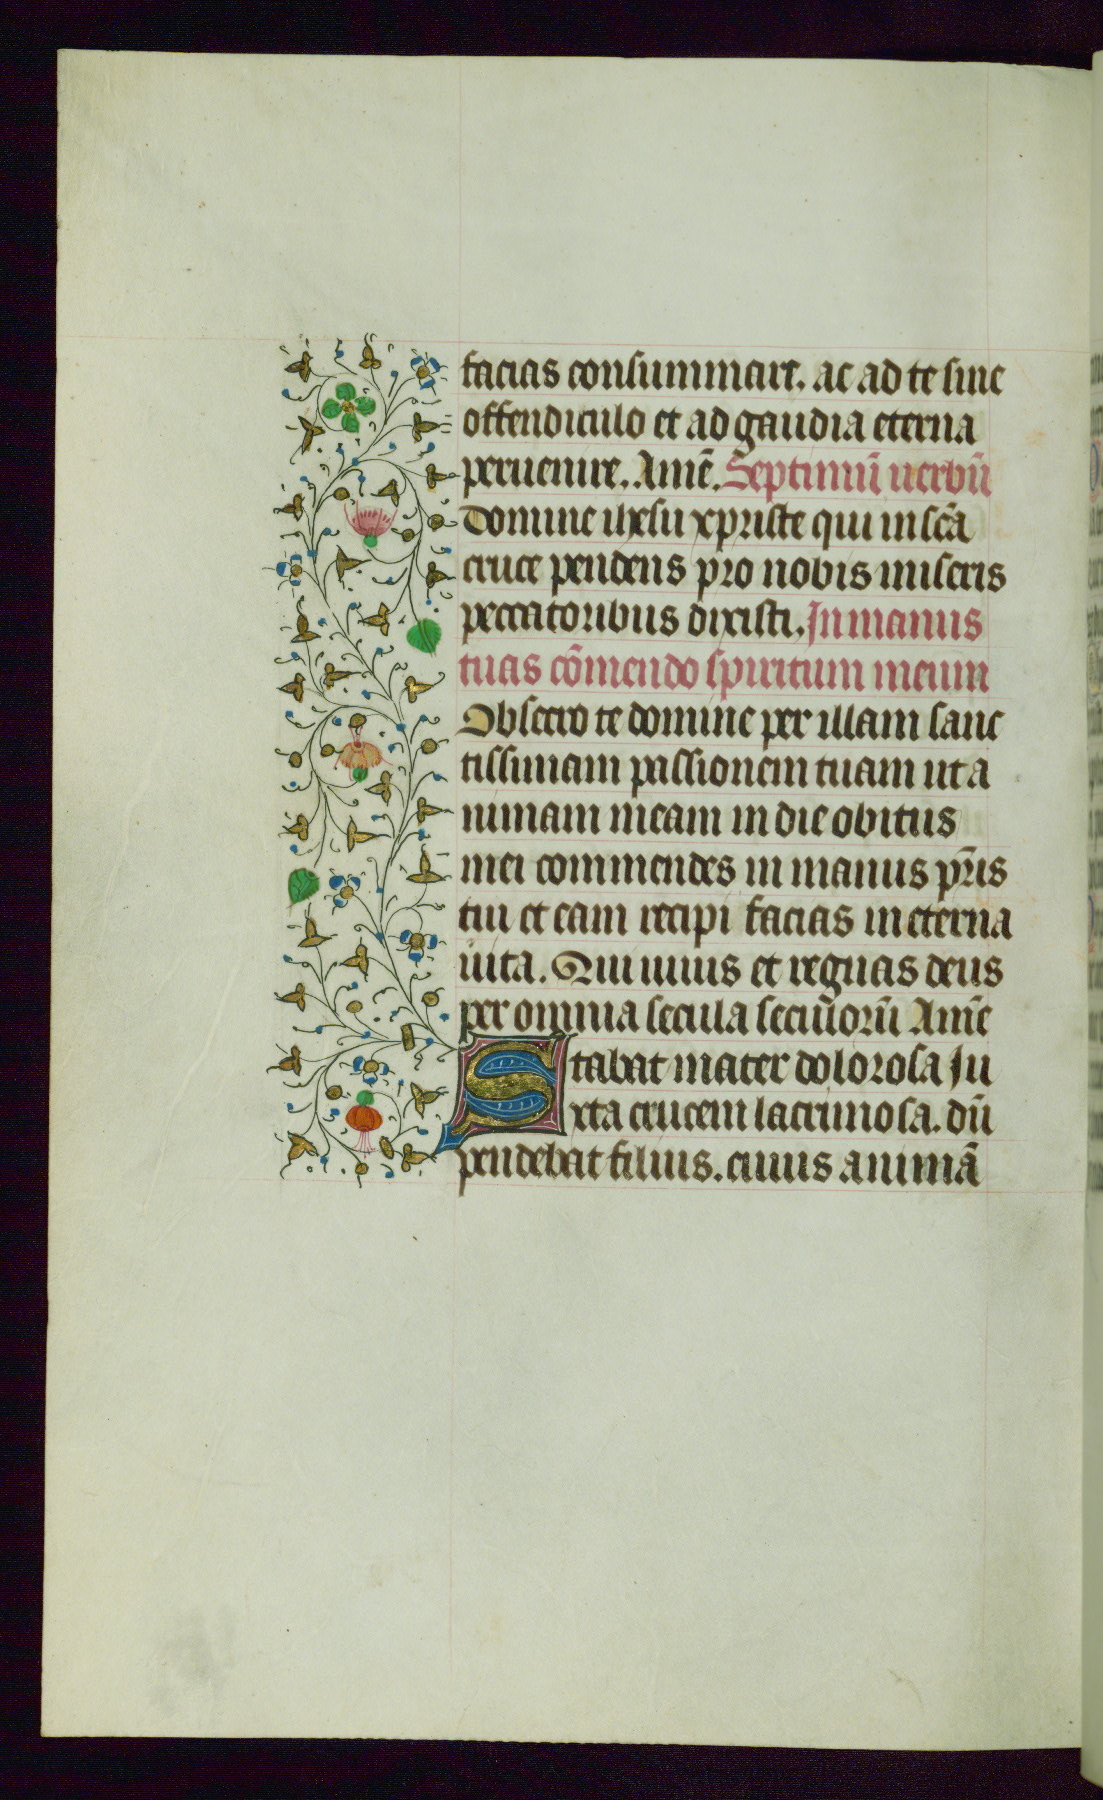 facias consummare. ac ad te sine
offendiculo et ad gaudia eterna
peruenire. Amē. Septimū uerbū
Domine ihesu xpriste qui in scā
cruce pendens pro nobis miseris
peccatoribus dixisti. In manus
tuas cōmendo spiritum meum
Obsecro te domine per illam sanc
tissimam passionem tuam ut a
nimam meam in die obitus
mei commendes in manus pr̄is
tui et eam recipi facias in eterna
uita. Qui uiuis et regnas deus
per omnia secula seculorū Amē
Stabat mater dolorosa Iu
xta crucem lacrimosa. dū
pendebat filius. cuius animā